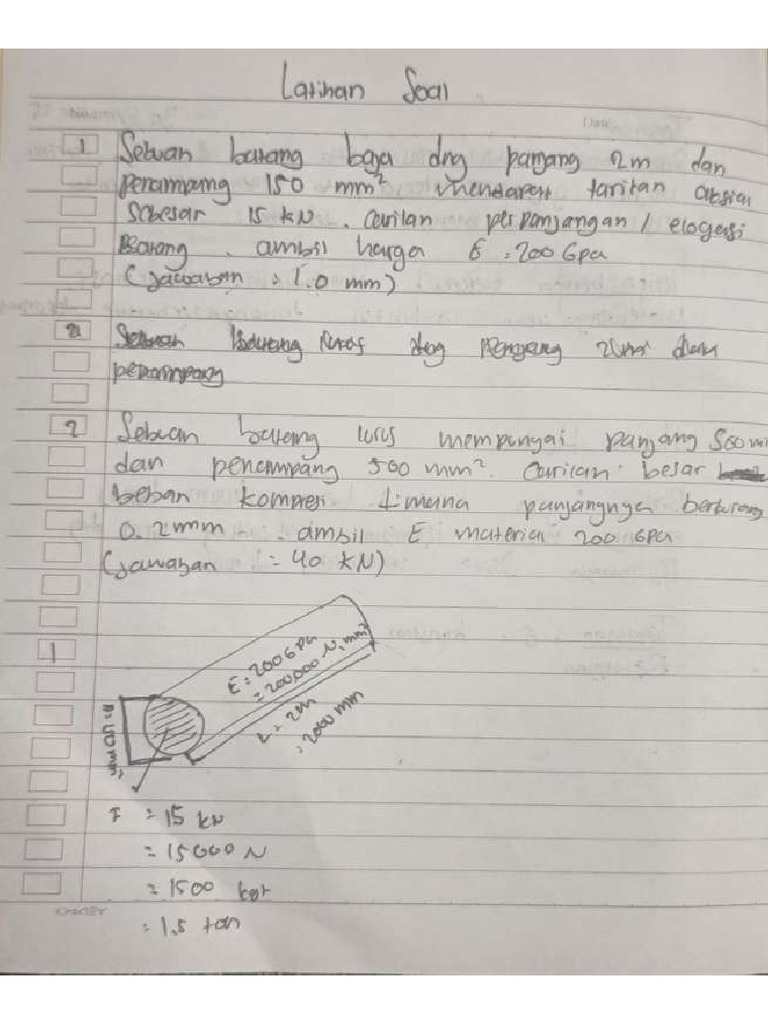 Latihan Soal
1 Sebuah batang baja dng panjang 2m dan
penampang 150 mm² mendapat tarikan aksial
Sebesar 15 kN. Carilah perpanjangan / elogasi
Batang. ambil harga E = 200 Gpa
(jawaban = 1.0 mm)
2 Sebuah batang lurus dng panjang dan
penampang
2 Sebuah batang lurus mempunyai panjang 500 m
dan penampang 500 mm². Carilah besar
beban kompresi dimana panjangnya berkurang
0.2mm. ambil E material 200 GPa
(jawaban = 40 kN)
1
E = 200 Gpa
= 200.000 N/mm²
L = 2m
= 2000 mm
F = 15 kN
= 15000 N
= 1500 kgf
= 1.5 ton